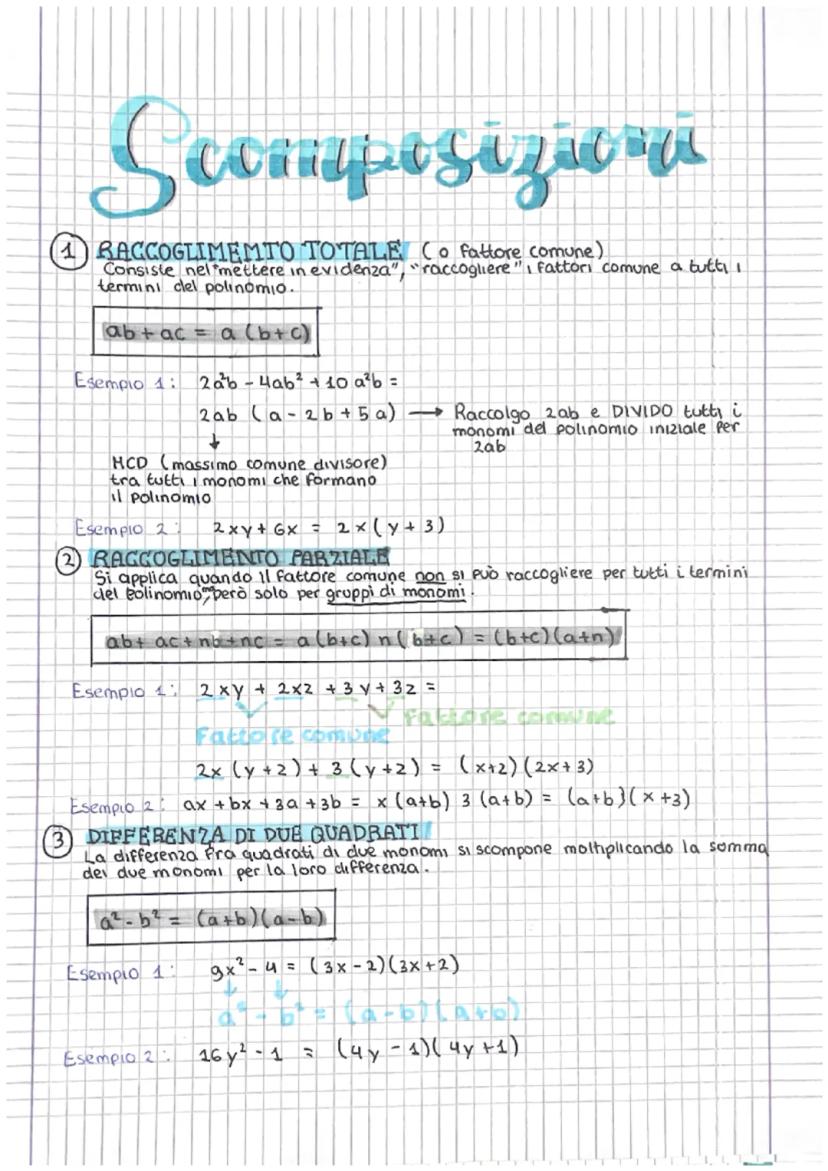 Scomposizioni
1 RACCOGLIMEMTO TOTALE (o fattore comune)
Consiste nel "mettere in evidenza", "raccogliere" i fattori comune a tutti i
termini del polinomio.
ab + ac = a (b+c)
Esempio 1: 2a²b - 4ab² + 10 a²b =
2ab (a - 2b + 5a) → Raccolgo 2ab e DIVIDO tutti i
monomi del polinomio iniziale per
2ab
↓
MCD (massimo comune divisore)
tra tutti i monomi che formano
il polinomio
Esempio 2: 2xy + 6x = 2x (y + 3)
2 RACCOGLIMENTO PARZIALE
Si applica quando il fattore comune non si può raccogliere per tutti i termini
del polinomio, però solo per gruppi di monomi.
ab + ac + nb + nc = a (b+c) n (b+c) = (b+c) (a+n)
Esempio 1: 2xy + 2xz + 3y + 3z =
Fattore comune
Fattore comune
2x (y+2) + 3 (y+2) = (x+2) (2x+3)
Esempio 2: ax + bx + 3a + 3b = x (a+b) 3 (a+b) = (a+b) (x+3)
3 DIFFERENZA DI DUE QUADRATI
La differenza fra quadrati di due monomi si scompone moltiplicando la somma
dei due monomi per la loro differenza.
a² - b² = (a+b) (a-b)
Esempio 1: 9x² - 4 = (3x - 2) (3x + 2)
↓ ↓
a² - b² = (a-b) (a+b)
Esempio 2: 16y² - 1 = (4y - 1) (4y + 1)